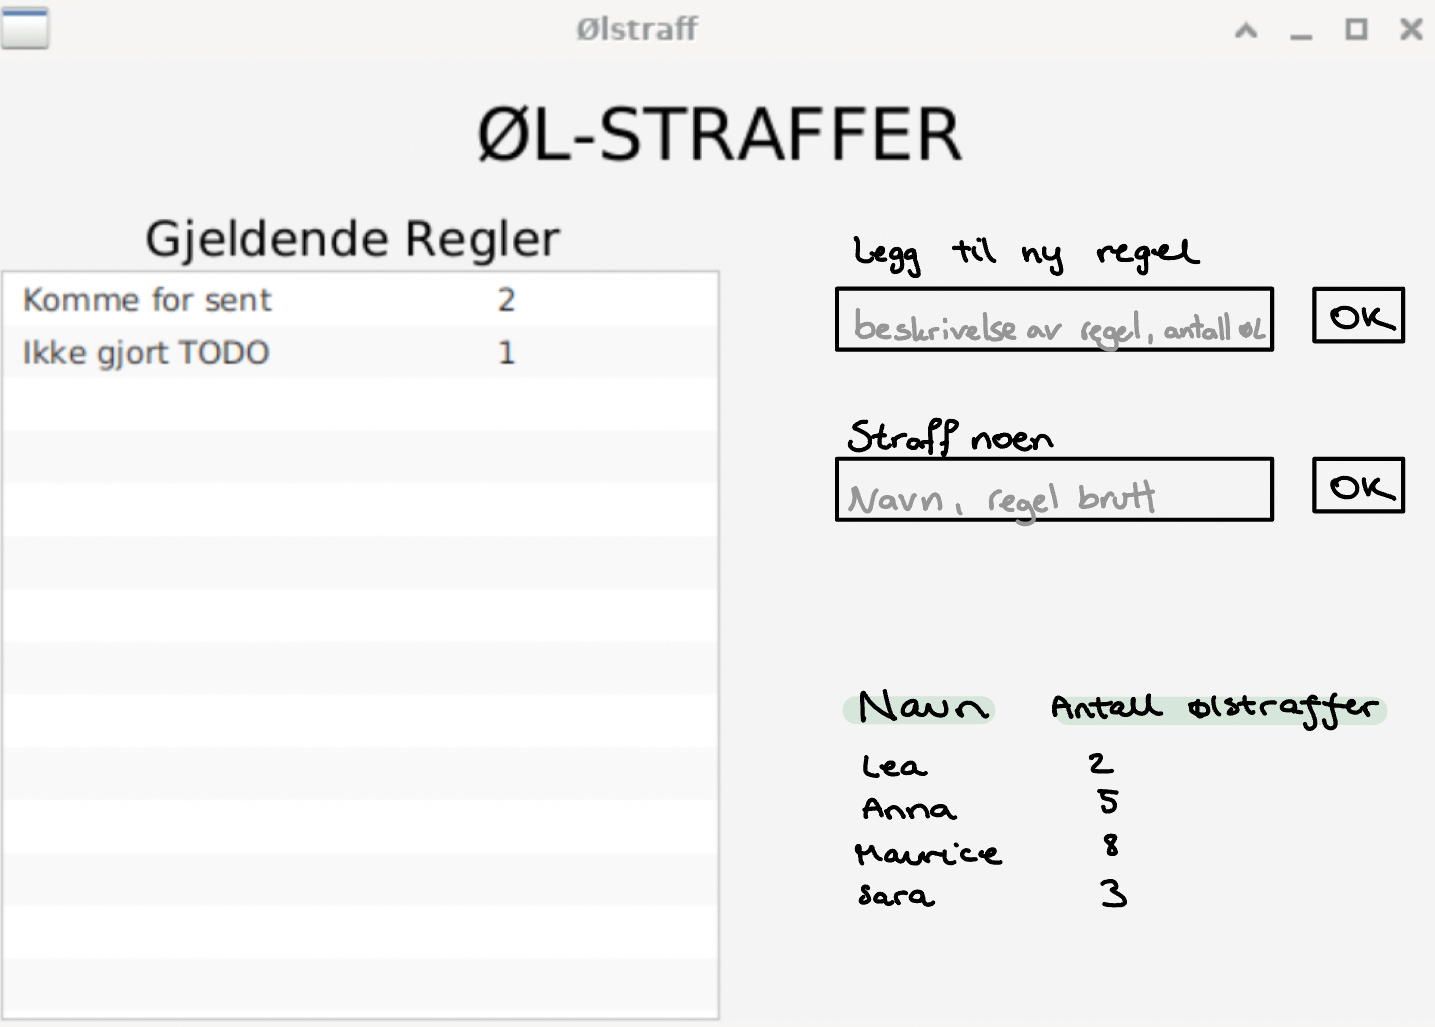 Ølstraff
ØL-STRAFFER
Gjeldende Regler
Komme for sent 2
Ikke gjort TODO 1
Legg til ny regel
beskrivelse av regel, antall øl
OK
Straff noen
Navn, regel brutt
OK
Navn Antall ølstraffer
Lea 2
Anna 5
Maurice 8
Sara 3